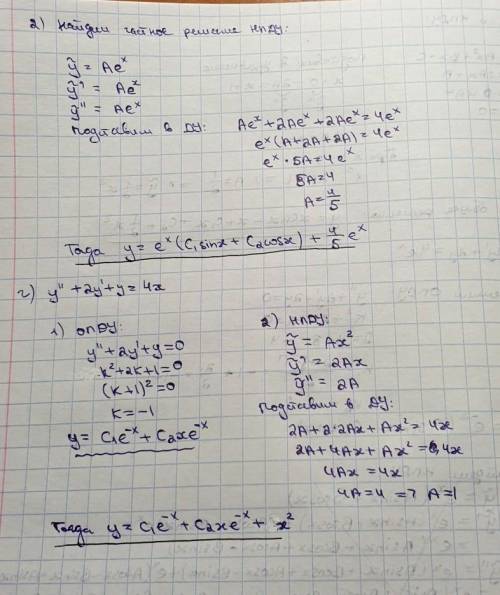 2) Найдём частное решение НПДУ:
ỹ = Ae^x
ỹ' = Ae^x
ỹ" = Ae^x
Подставим в ДУ: Ae^x + 2Ae^x + 2Ae^x = 4e^x
e^x(A+2A+2A) = 4e^x
e^x · 5A = 4e^x
5A = 4
A = 4/5
Тогда y = e^x(C₁sinx + C₂cosx) + 4/5 e^x
г) y" + 2y' + y = 4x
1) ОПДУ:
y" + 2y' + y = 0
k² + 2k + 1 = 0
(k+1)² = 0
k = -1
y = C₁e^-x + C₂xe^-x
2) НПДУ:
ỹ = Ax²
ỹ' = 2Ax
ỹ" = 2A
Подставим в ДУ:
2A + 2·2Ax + Ax² = 4x
2A + 4Ax + Ax² = 4x
4Ax = 4x
4A = 4 => A = 1
Тогда y = C₁e^-x + C₂xe^-x + x²